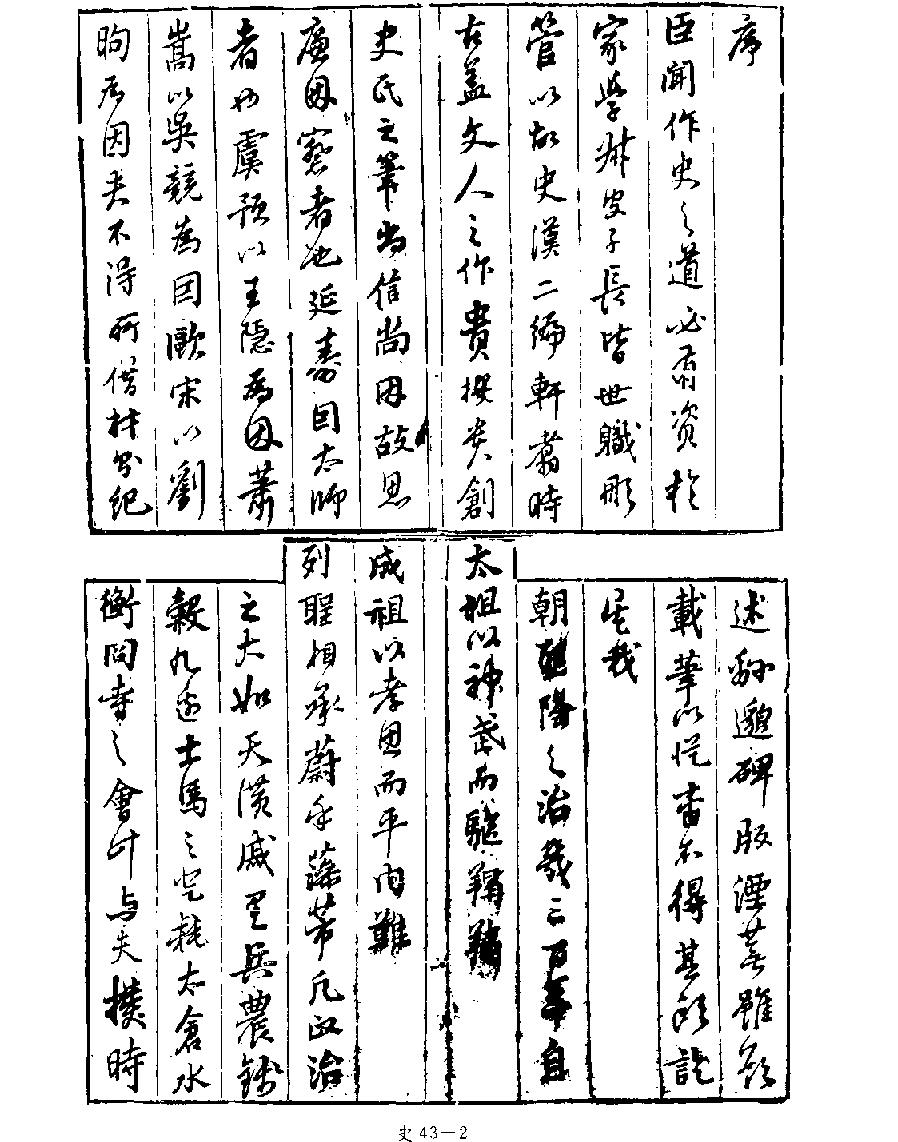 序
臣聞作史之道必有資於
家學叔皮子長皆世職彤
管以故史漢二編軒翥時
古蓋文人之作貴撰貴創
史氏之筆尚信尚因故思
廉因察者也延壽因太師
者也虞預以王隱為因蕭
嵩以吳競為因歐宋以劉
昫為因夫不得所借材出紀
述夥邈碑版湮蕪雖欲
載筆以從末不得其所詎
星哉
朝郅隆陽之治幾三百年自
太祖以神武而驅
成祖以孝思而平內難
列聖相承蔚乎藻芾凡政治
之大如天潢戚里兵農錢
穀九邊士馬之登耗太倉水
衡冏寺之會計与夫揆時
史43—2